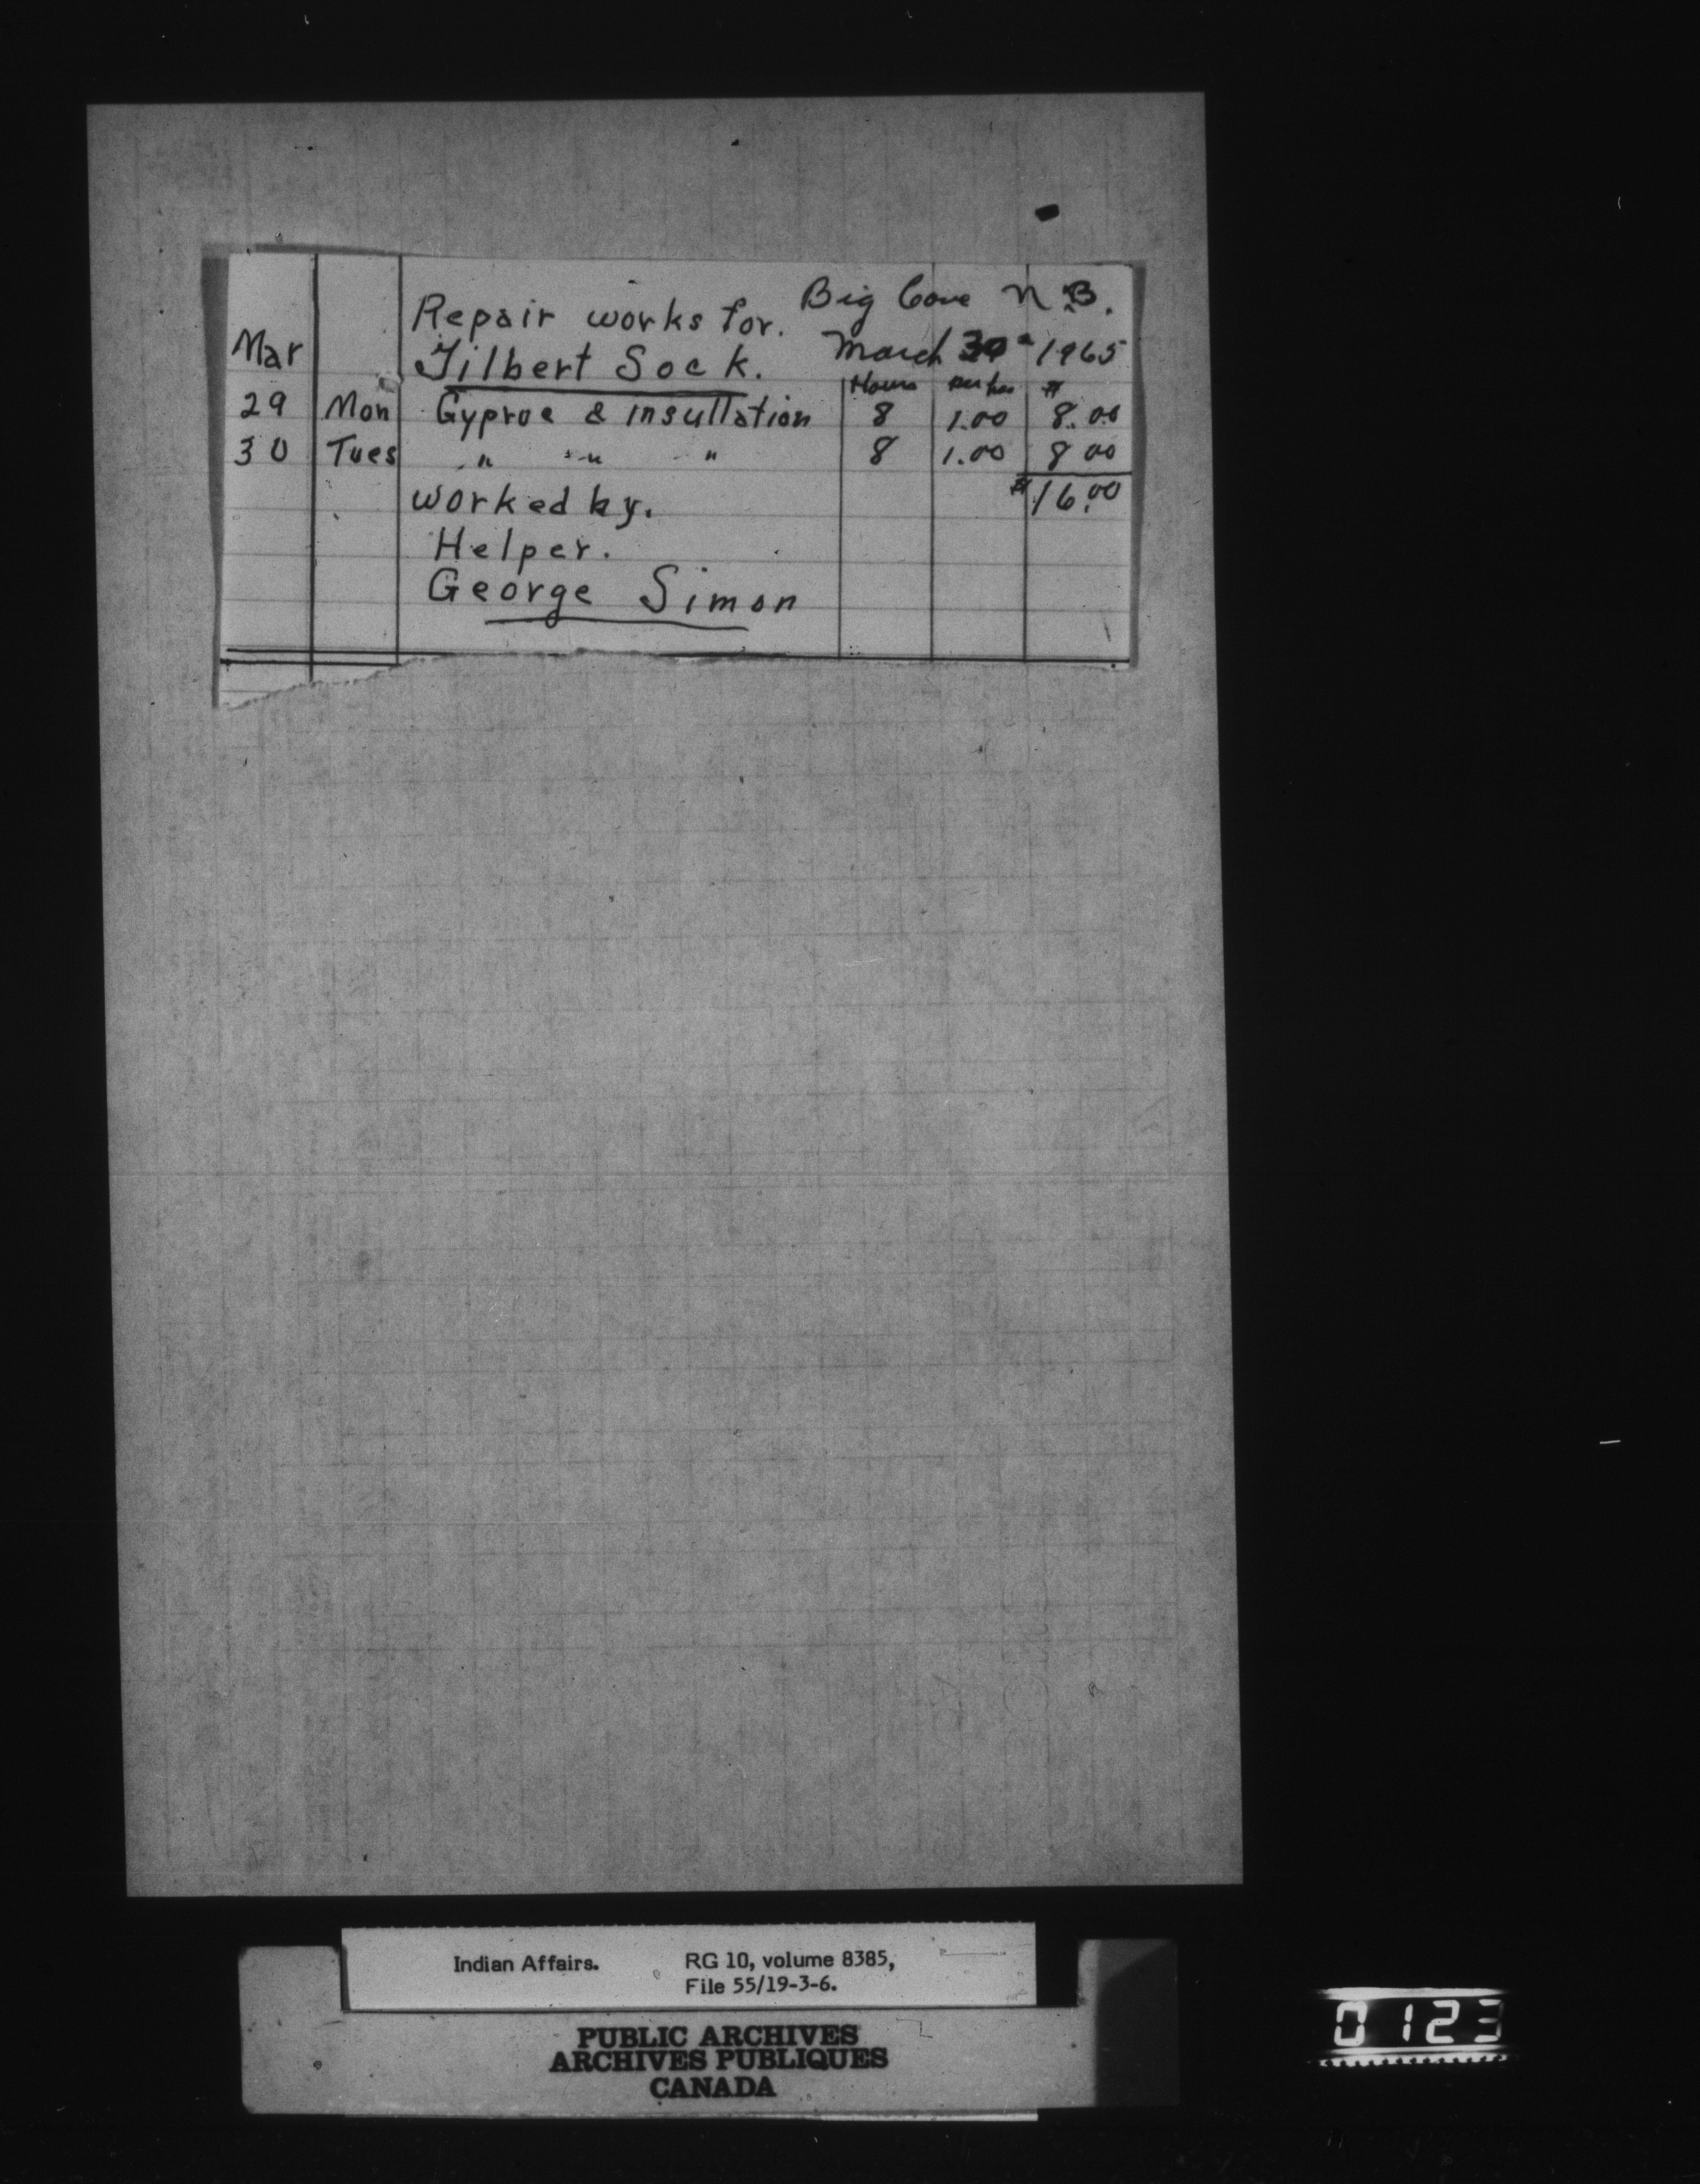 Big Cove N.B.
Repair works for.
Mar Gilbert Sock. March 30 1965
Hours per hr $
29 Mon Gyproc & insullation 8 1.00 8.00
30 Tues " " " 8 1.00 8 00
worked by. $16.00
Helper.
George Simon
Indian Affairs. RG 10, volume 8385,
File 55/19-3-6.
PUBLIC ARCHIVES
ARCHIVES PUBLIQUES
CANADA
0123